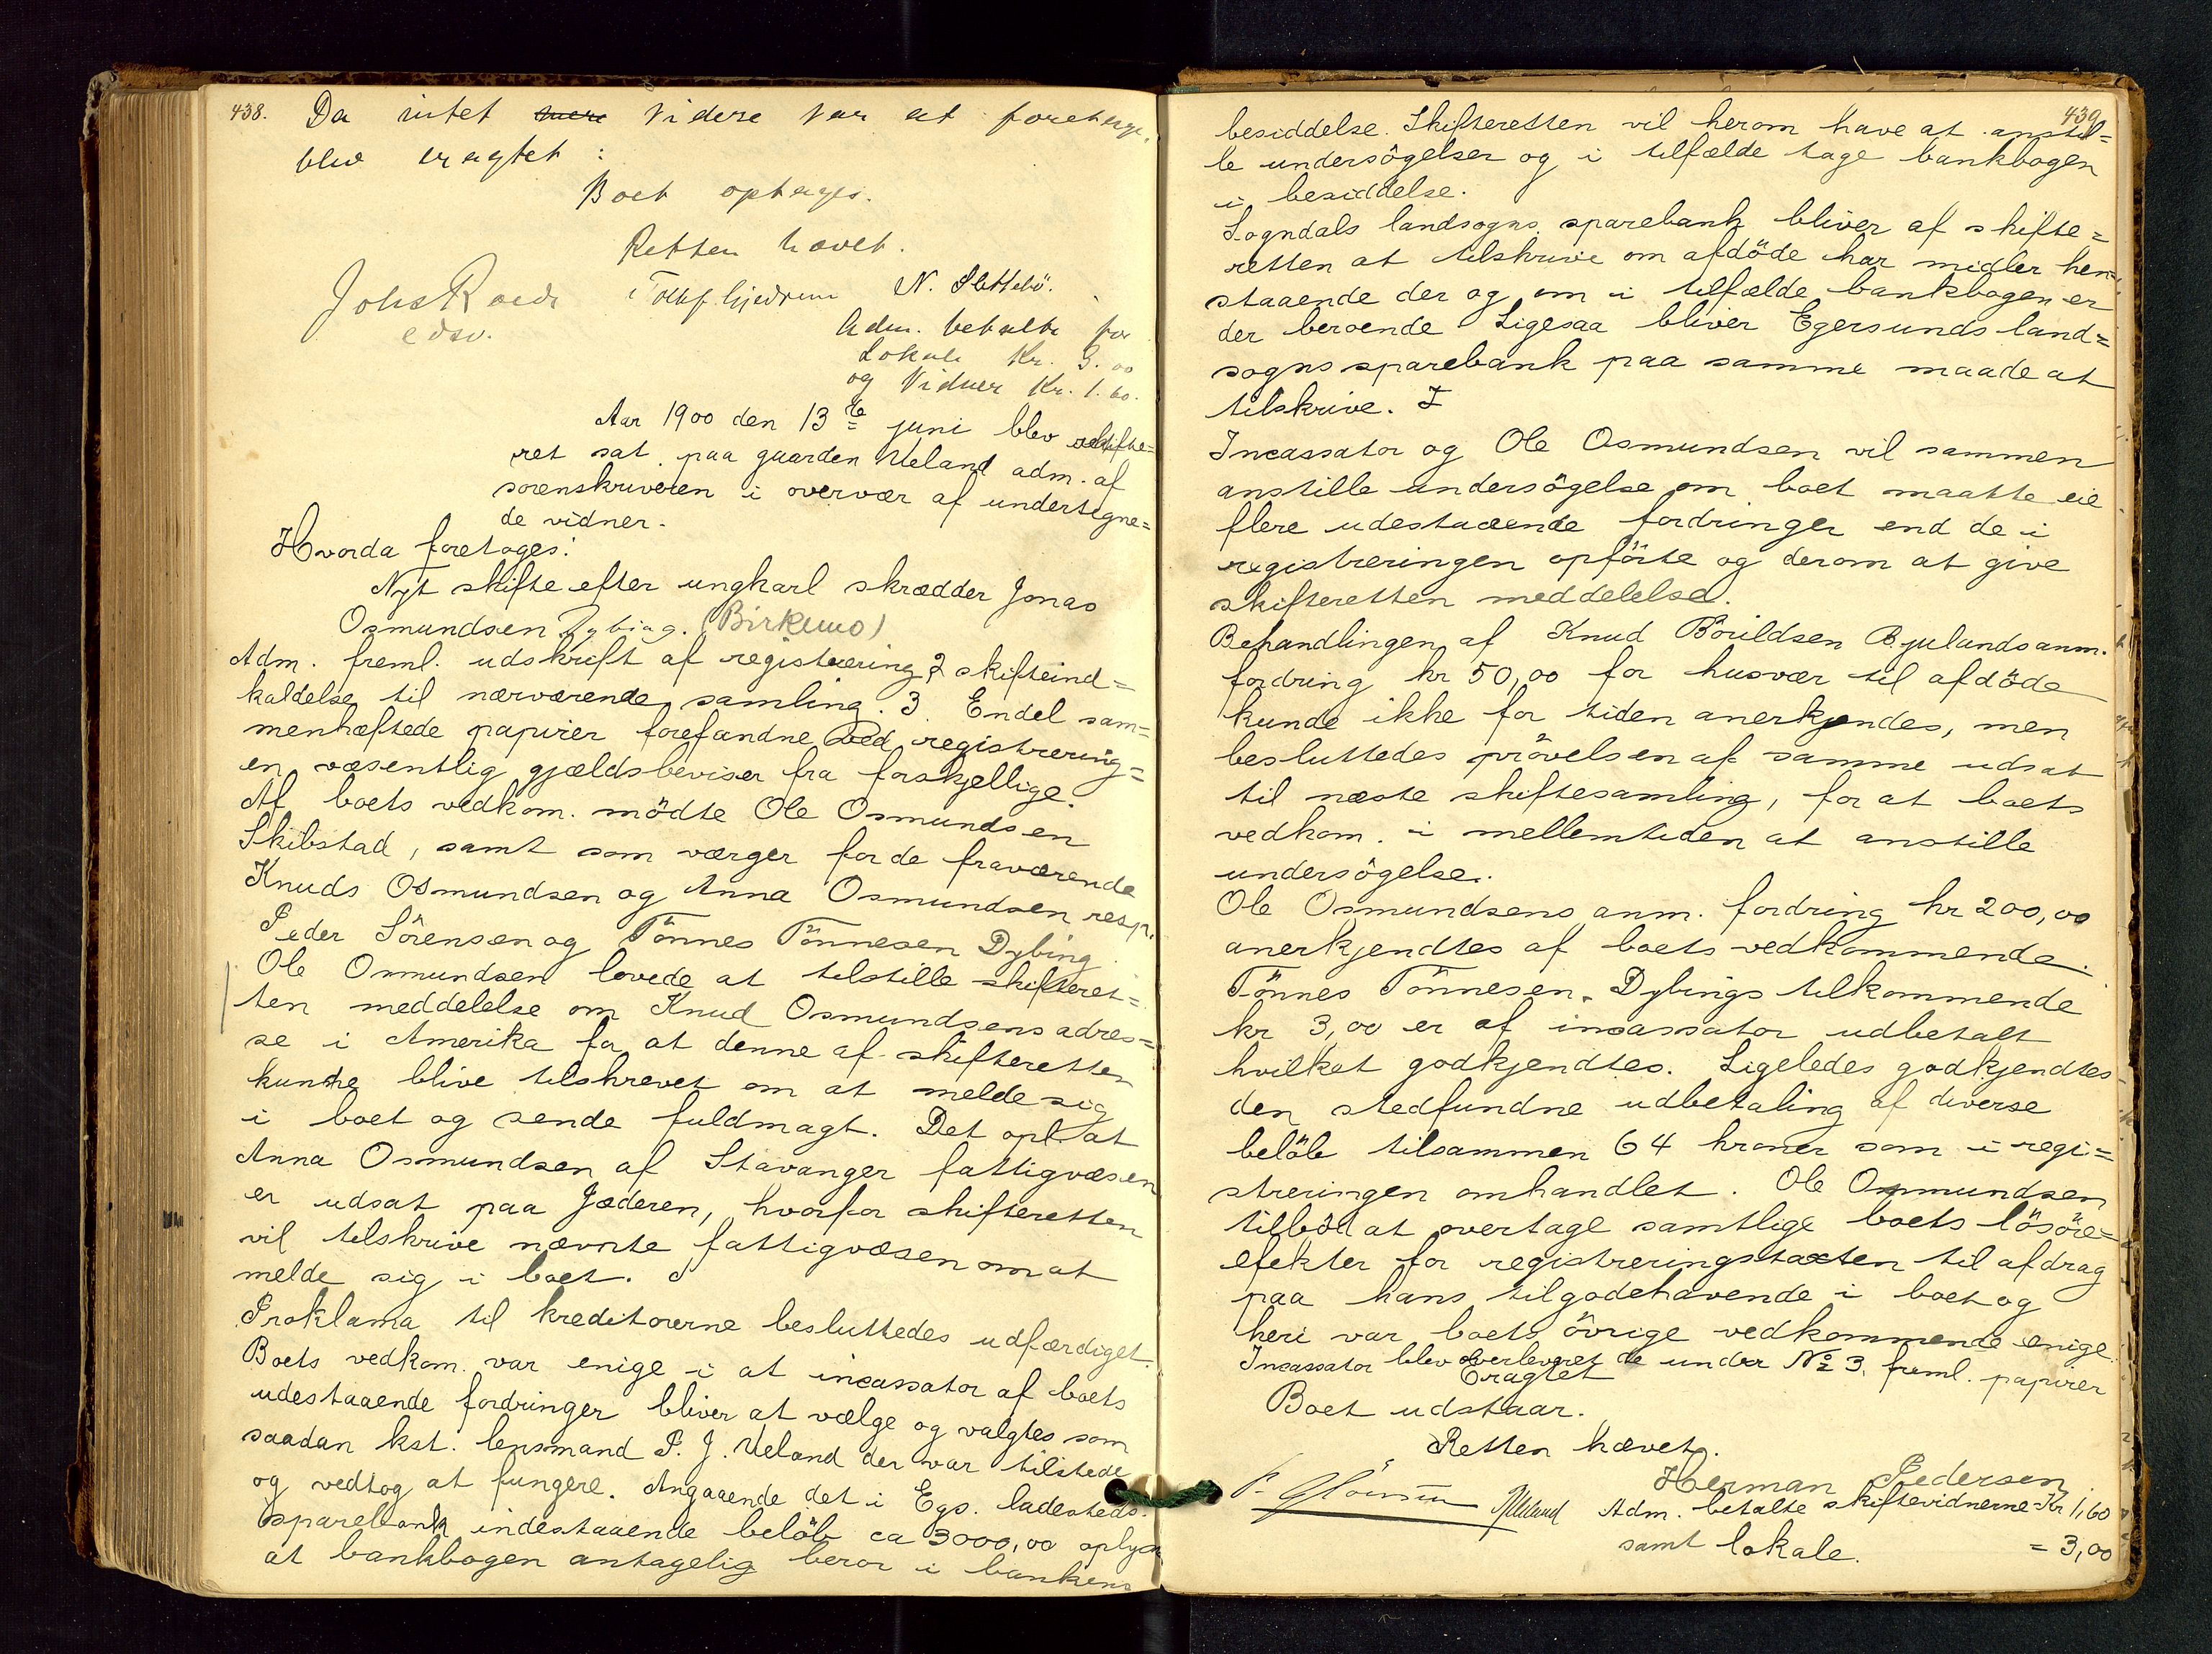 438.
Da intet mere videre var at foretage.
blev eragtet:
Boet optages.
Retten hævet.
Johs Roede
edsv.
N. Slettebö.
Adm. betalte for
Lokale Kr. 3.00
og Vidner Kr. 1.60.
Aar 1900 den 13de juni blev skifte=
ret sat paa gaarden Ueland adm. af
sorenskriveren i overvær af undertegne=
de vidner.
Hvorda foretoges:
Nyt skifte efter ungkarl skrædder Jonas
Osmundsen Dybing. (Birkemo)
Adm. freml. udskrift af registrering, 2 skifteind=
kaldelse til nærværende samling. 3. Endel sam=
menhæftede papirer forefandne ved registrering=
en væsentlig gjældsbeviser fra forskjellige.
Af boets vedkom. mödte Ole Osmundsen
Skibstad, samt som værger for de fraværende
Knuds Osmundsen og Anna Osmundsen resp.
Peder Sörensen og Tönnes Tönnesen Dybing.
Ole Osmundsen lovede at tilstille skifteret=
ten meddelelse om Knud Osmundsens adres=
se i Amerika for at denne af skifteretten
kunde blive tilskrevet om at melde sig
i boet og sende fuldmagt. Det opl. at
Anna Osmundsen af Stavanger fattigvæsen
er udsat paa Jæderen, hvorfor skifteretten
vil tilskrive nævnte fattigvæsen om at
melde sig i boet.
Proklama til kreditorerne besluttedes udfærdiget.
Boets vedkom. var enige i at incassator af boets
udestaaende fordringer bliver at vælge og valgtes som
saadan kst. lensmand P. J. Ueland der var tilstede
og vedtog at fungere. Angaaende det i Egs. ladesteds
sparebank indestaaende belöb ca 3000,00 oplyses
at bankbogen antagelig beror i bankens
439
besiddelse. Skifteretten vil herom have at anstil=
le undersögelser og i tilfælde tage bankbogen
i besiddelse.
Sogndals landsogns sparebank bliver af skifte=
retten at tilskrive om afdöde har midler hen=
staaende der og om i tilfælde bankbogen er
der beroende. Ligesaa bliver Egersunds land=
sogns sparebank paa samme maade at
tilskrive. I
Incassator og Ole Osmundsen vil sammen
anstille undersögelse om boet maatte eie
flere udestaaende fordringer end de i
registreringen opförte og derom at give
skifteretten meddelelse.
Behandlingen af Knud Börildsen Bjulands anm.
fordring kr 50,00 for husvær til afdöde
kunde ikke for tiden anerkjendes, men
besluttedes prövelsen af samme udsat
til næste skiftesamling, for at boets
vedkom. i mellemtiden at anstille
undersögelse.
Ole Osmundsens anm. fordring kr 200,00
anerkjendtes af boets vedkommende.
Tönnes Tönnesen Dybings tilkommende
kr 3,00 er af incassator udbetalt
hvilket godkjendtes. Ligeledes godkjendtes
den stedfundne udbetaling af diverse
belöb tilsammen 64 kroner som i regi=
streringen omhandlet. Ole Osmundsen
tilböd at overtage samtlige boets lösöre=
efekter for registreringstaxten til afdrag
paa hans tilgodehavende i boet og
heri var boets övrige vedkommende enige.
Incassator blev overleveret de under No 3. freml. papirer
Eragtet
Boet udstaar.
Retten hævet.
Herman Pedersen
Ueland
Adm. betalte skiftevidnerne Kr 1,60
samt lokale. = 3,00